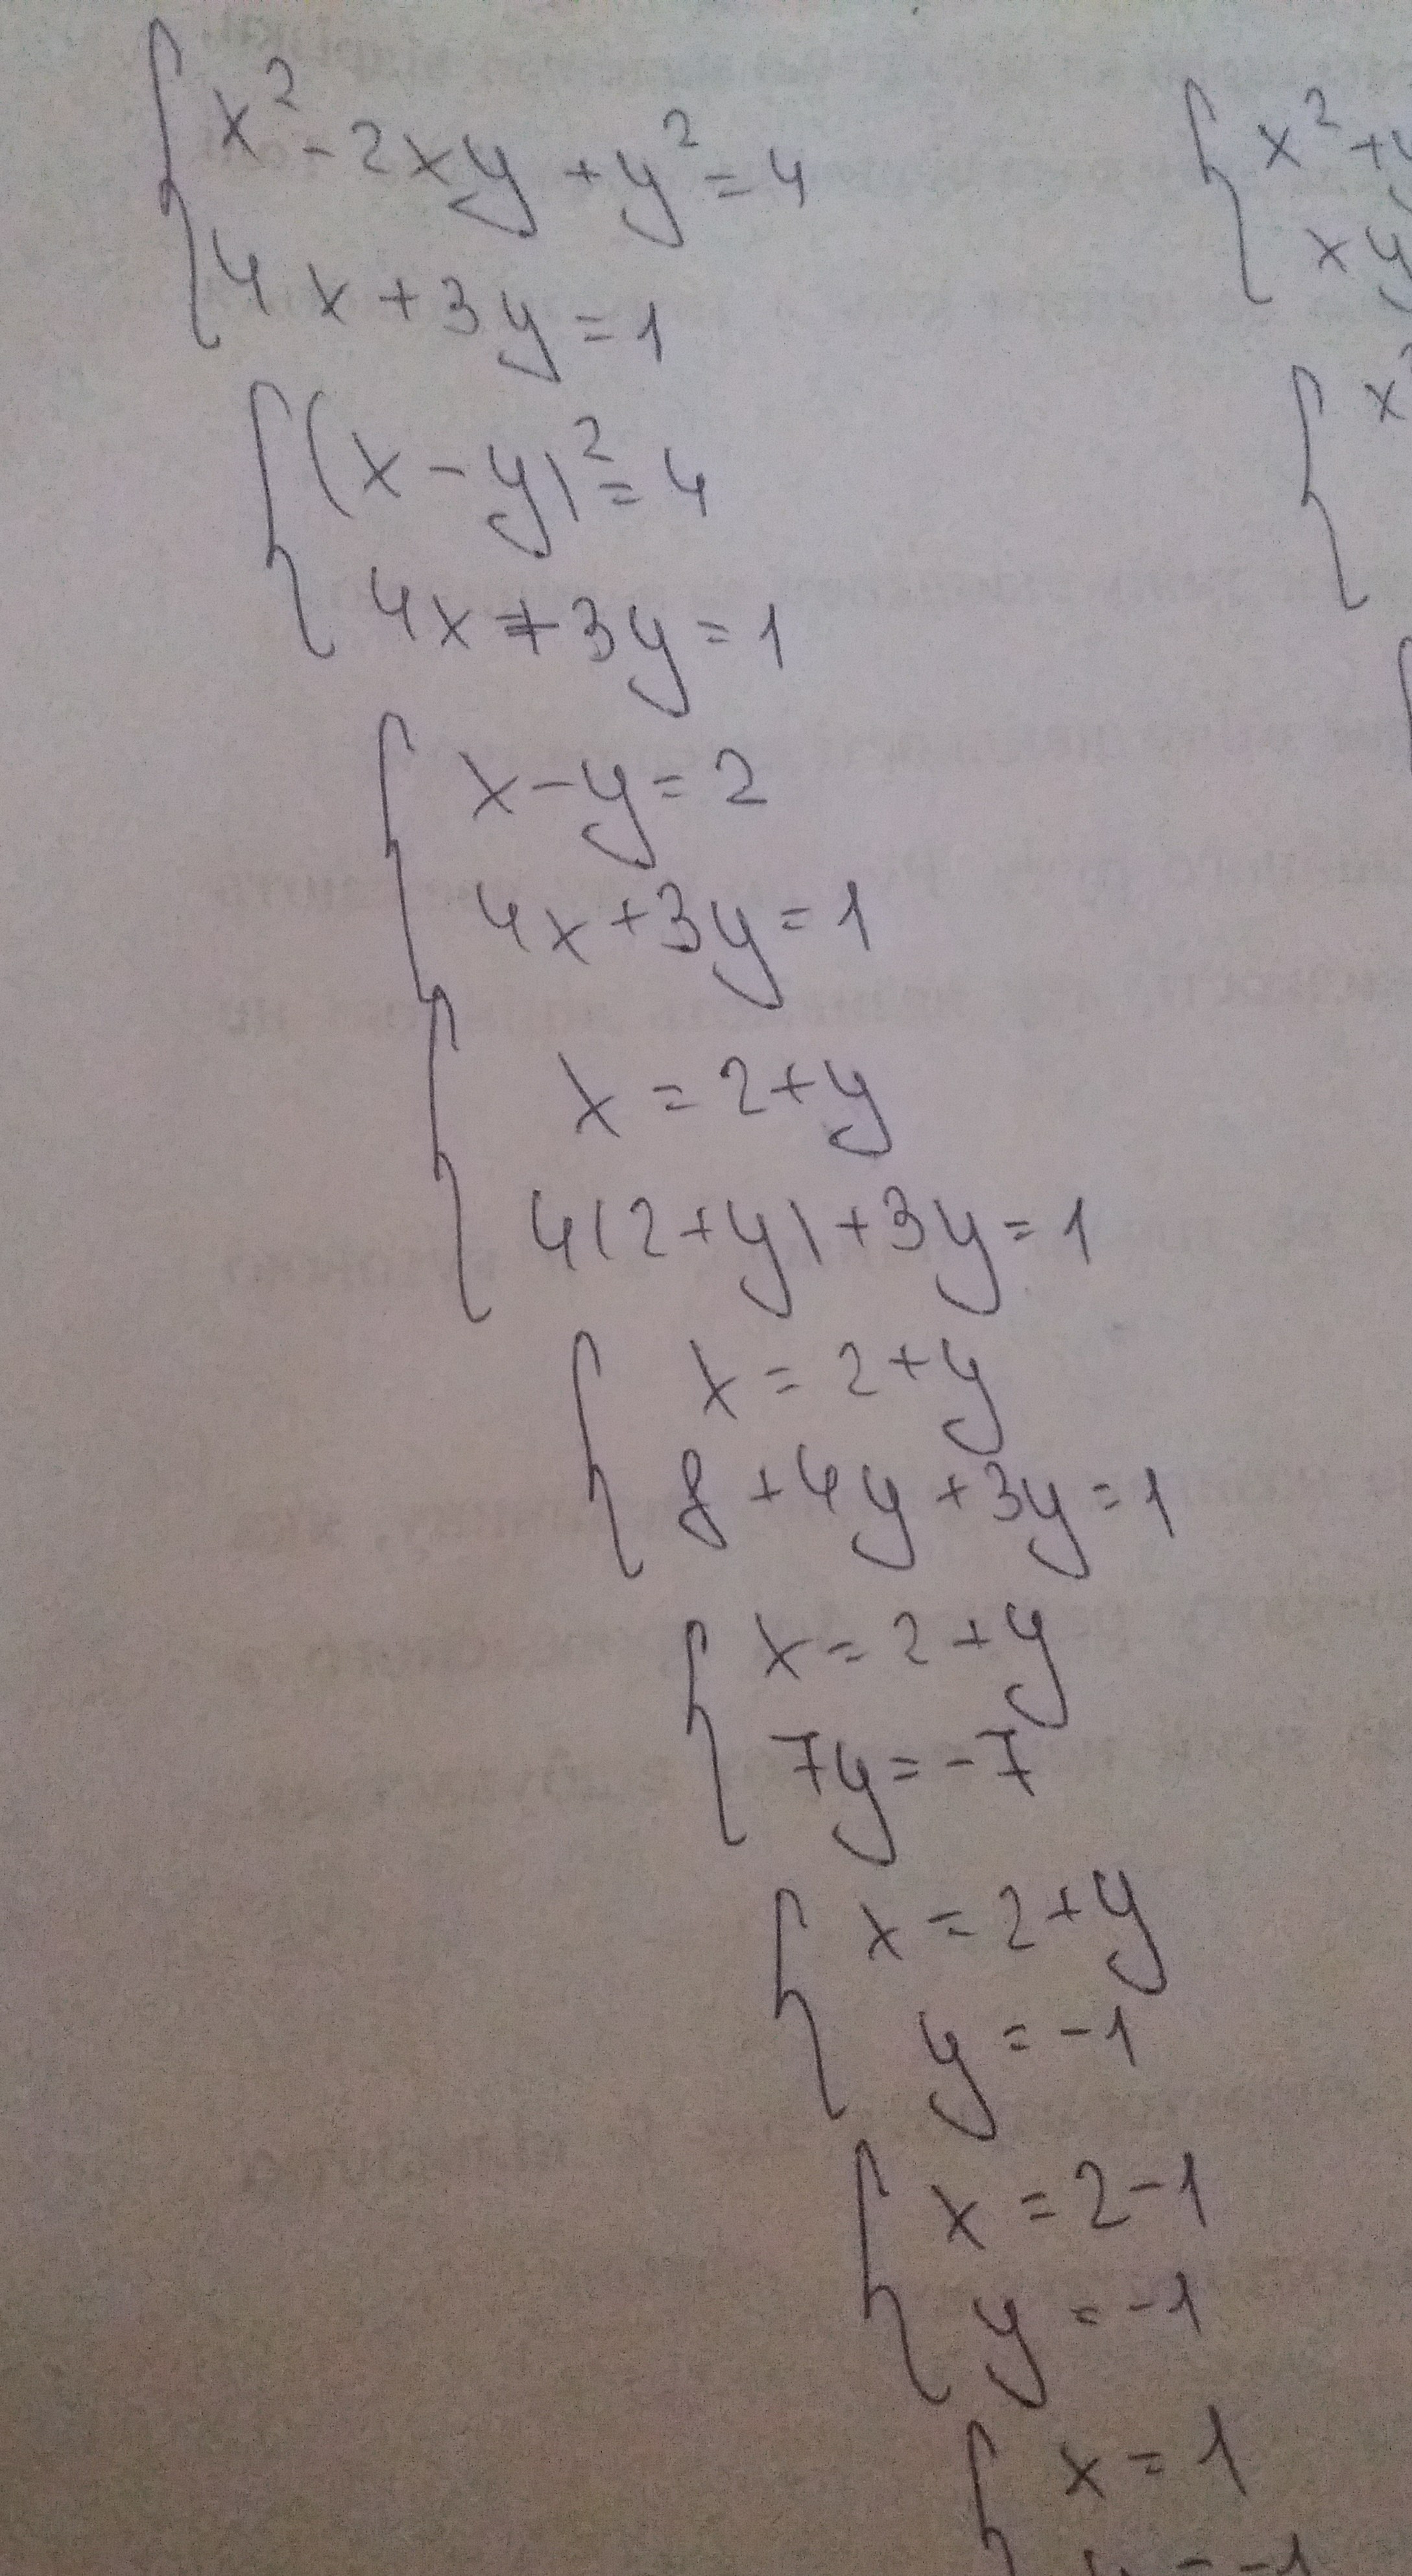 x² - 2xy + y² = 4
4x + 3y = 1
(x - y)² = 4
4x + 3y = 1
x - y = 2
4x + 3y = 1
x = 2 + y
4(2 + y) + 3y = 1
x = 2 + y
8 + 4y + 3y = 1
x = 2 + y
7y = -7
x = 2 + y
y = -1
x = 2 - 1
y = -1
x = 1
y = -1
x² + y
xy
x²